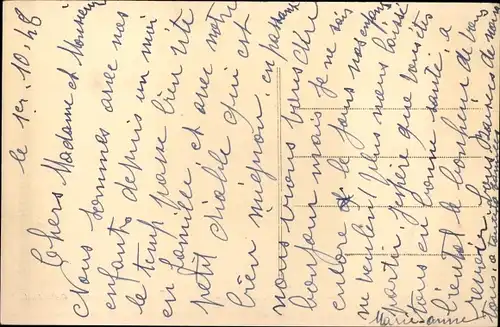 le 1er. 10. 48
Chers Madame et Monsieur
Nous sommes avec nos
enfants depuis un moi
le temp passe bien vite
en famille et avec notre
petit diable qui est
bien mignon. en passant
nous irons vous dire
bonjour mais je ne sais
encore le jour nos enfants
ne veulent plus nous laisser
partir. J'espère que vous êtes
tous en bonne santé, a
bientot le bonheur de vous
revoir Bons Baisers de nous
tous
Marie-anne